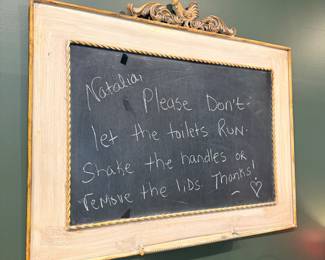 Natalia,
Please Don't
let the toilets Run.
Shake the handles or
remove the lids. Thanks!